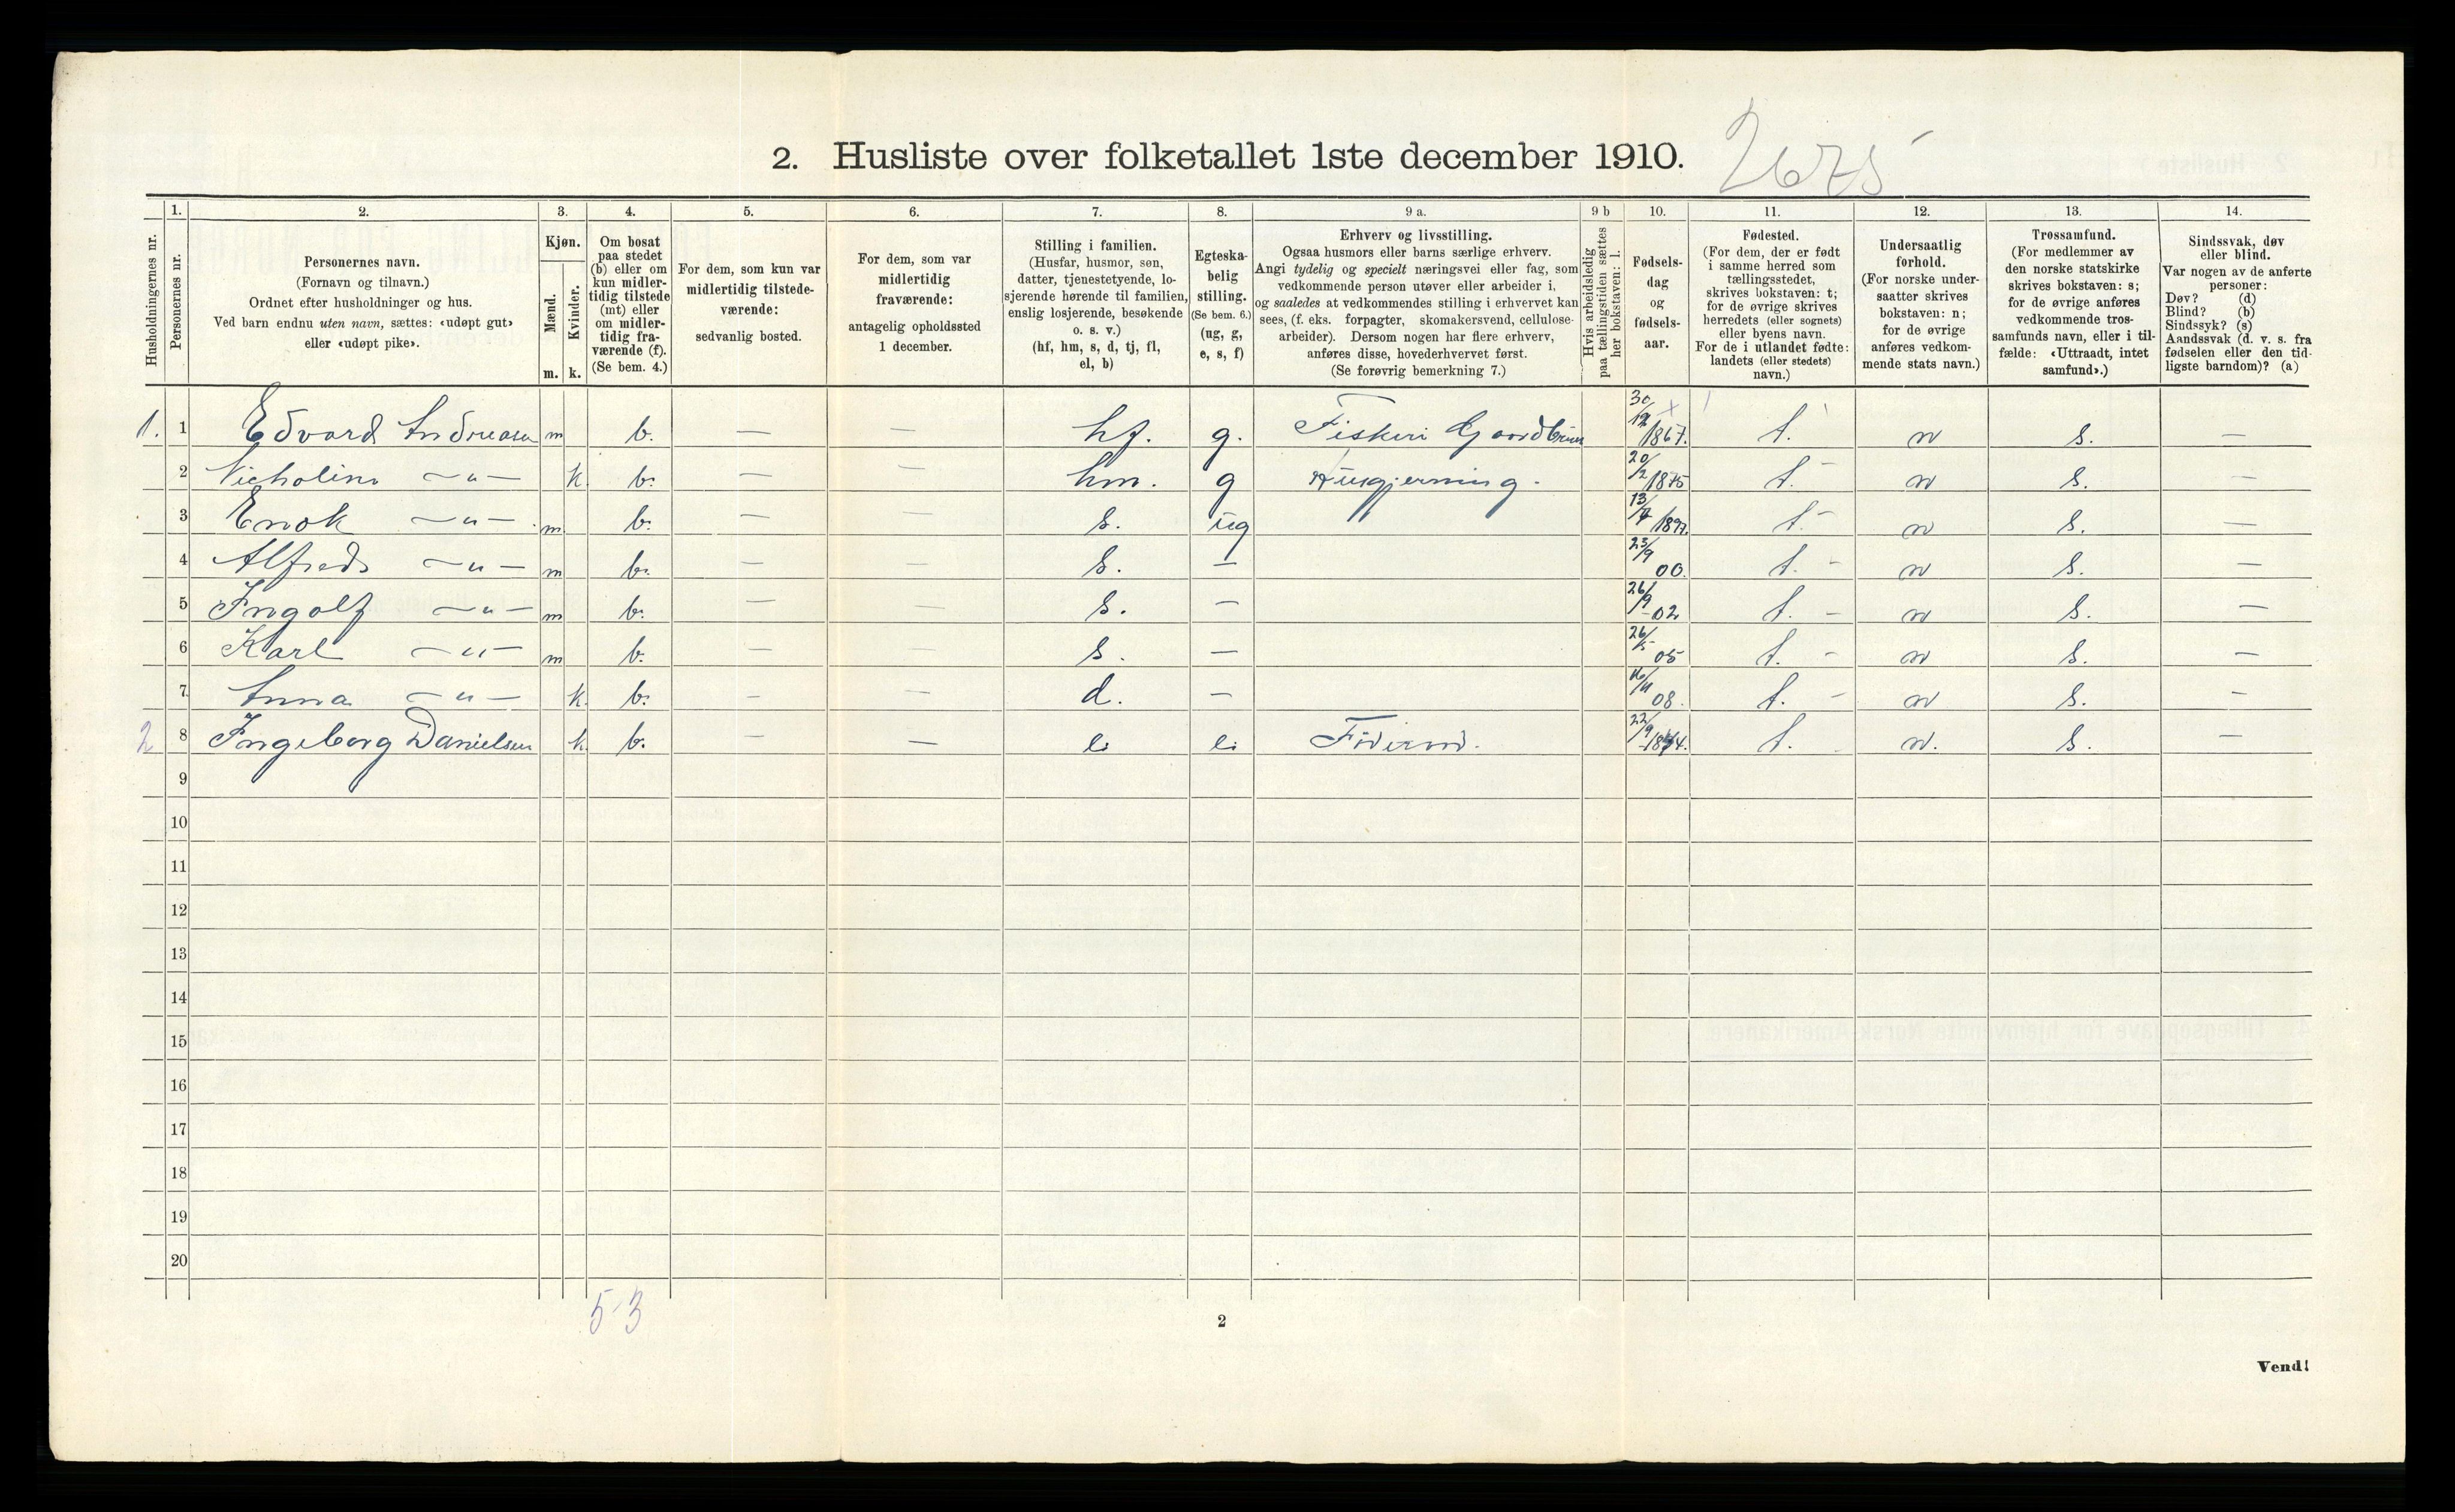 2. Husliste over folketallet 1ste december 1910. 2675
1. 2. 3. 4. 5. 6. 7. 8. 9 a. 9 b 10. 11. 12. 13. 14.
Husholdningernes nr.
Personernes nr.
Personernes navn.
(Fornavn og tilnavn.)
Ordnet efter husholdninger og hus.
Ved barn endnu uten navn, sættes: «udøpt gut»
eller «udøpt pike».
Kjøn.
Mænd.
Kvinder.
m. k.
Om bosat
paa stedet
(b) eller om
kun midler-
tidig tilstede
(mt) eller
om midler-
tidig fra-
værende (f).
(Se bem. 4.)
For dem, som kun var
midlertidig tilstede-
værende:
sedvanlig bosted.
For dem, som var
midlertidig
fraværende:
antagelig opholdssted
1 december.
Stilling i familien.
(Husfar, husmor, søn,
datter, tjenestetyende, lo-
sjerende hørende til familien,
enslig losjerende, besøkende
o. s. v.)
(hf, hm, s, d, tj, fl,
el, b)
Egteska-
belig
stilling.
(Se bem. 6.)
(ug, g,
e, s, f)
Erhverv og livsstilling.
Ogsaa husmors eller barns særlige erhverv.
Angi tydelig og specielt næringsvei eller fag, som
vedkommende person utøver eller arbeider i,
og saaledes at vedkommendes stilling i erhvervet kan
sees, (f. eks. forpagter, skomakersvend, cellulose-
arbeider). Dersom nogen har flere erhverv,
anføres disse, hovederhvervet først.
(Se forøvrig bemerkning 7.)
Hvis arbeidsledig
paa tællingstiden sættes
her bokstaven: l.
Fødsels-
dag
og
fødsels-
aar.
Fødested.
(For dem, der er født
i samme herred som
tællingsstedet,
skrives bokstaven: t;
for de øvrige skrives
herredets (eller sognets)
eller byens navn.
For de i utlandet fødte:
landets (eller stedets)
navn.)
Undersaatlig
forhold.
(For norske under-
saatter skrives
bokstaven: n;
for de øvrige
anføres vedkom-
mende stats navn.)
Trossamfund.
(For medlemmer av
den norske statskirke
skrives bokstaven: s;
for de øvrige anføres
vedkommende tros-
samfunds navn, eller i til-
fælde: «Uttraadt, intet
samfund».)
Sindssvak, døv
eller blind.
Var nogen av de anførte
personer:
Døv? (d)
Blind? (b)
Sindssyk? (s)
Aandssvak (d. v. s. fra
fødselen eller den tid-
ligste barndom)? (a)
1. 1 Edvard Andreasen m b. — — hf. g. Fiskeri Gaardbruk 30/12 1867. t. n s. —
2 Nicholine —„— k. b. — — hm. g Husgjerning. 20/2 1875 t. n s. —
3 Enok —„— m b. — — s. ug 13/7 1897. t. n s. —
4 Alfred —„— m b. — — s. — 23/9 00. t. n s. —
5 Ingolf —„— m b. — — s. — 26/9 02 t. n s. —
6 Karl —„— m b. — — s. — 26/5 05 t. n s. —
7 Anna —„— k. b. — — d. — 16/11 08. t. n s. —
2 8 Ingeborg Danielsen k b. — — 22/9 t. n. s. —
9
10
11
12
13
14
15
16
17
18
19
20
5-3
2
Vend!